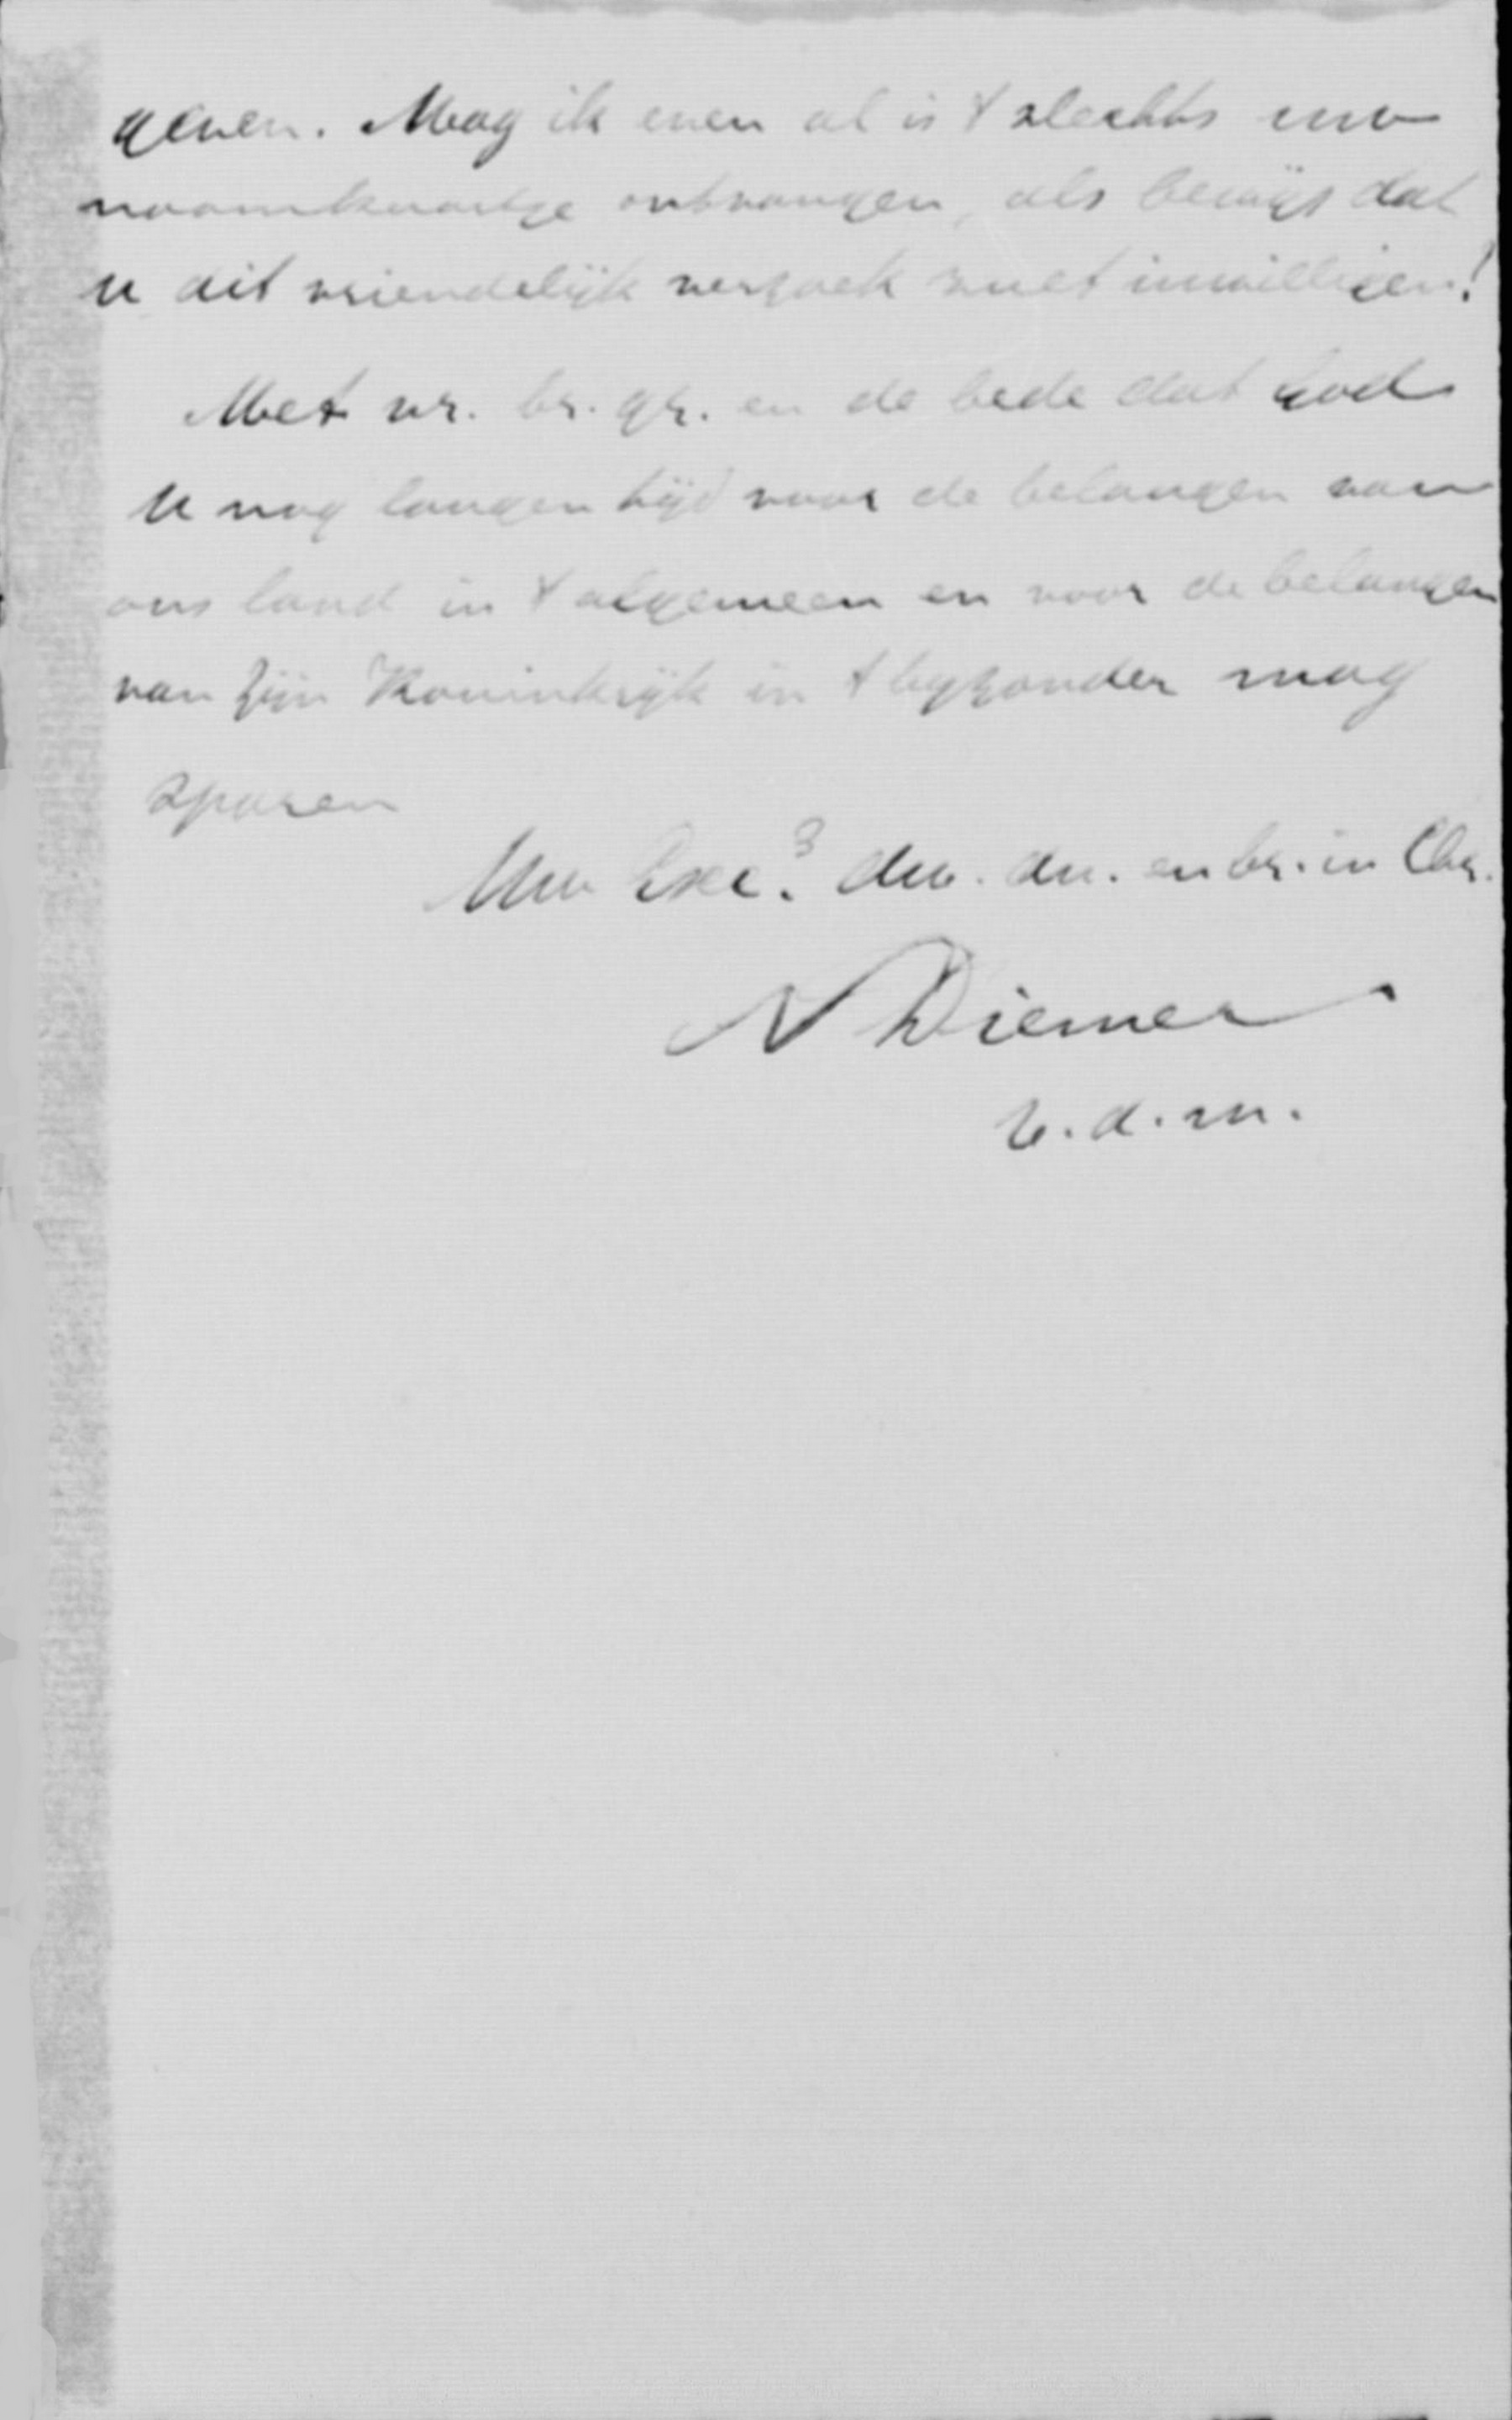 geven. Mag ik even al is 't slechts uw
naamkaartje ontvangen, als bewijs dat
u dit vriendelijk verzoek wilt inwilligen!
Met vr. br. gr. en de bede dat God
U nog langen tijd voor de belangen van
ons land in 't algemeen en voor de belangen
van zijn Koninkrijk in 't byzonder mag
sparen
Uw Exc. dw. dn. en br. in Chr.
N Diemer
v.d.m.